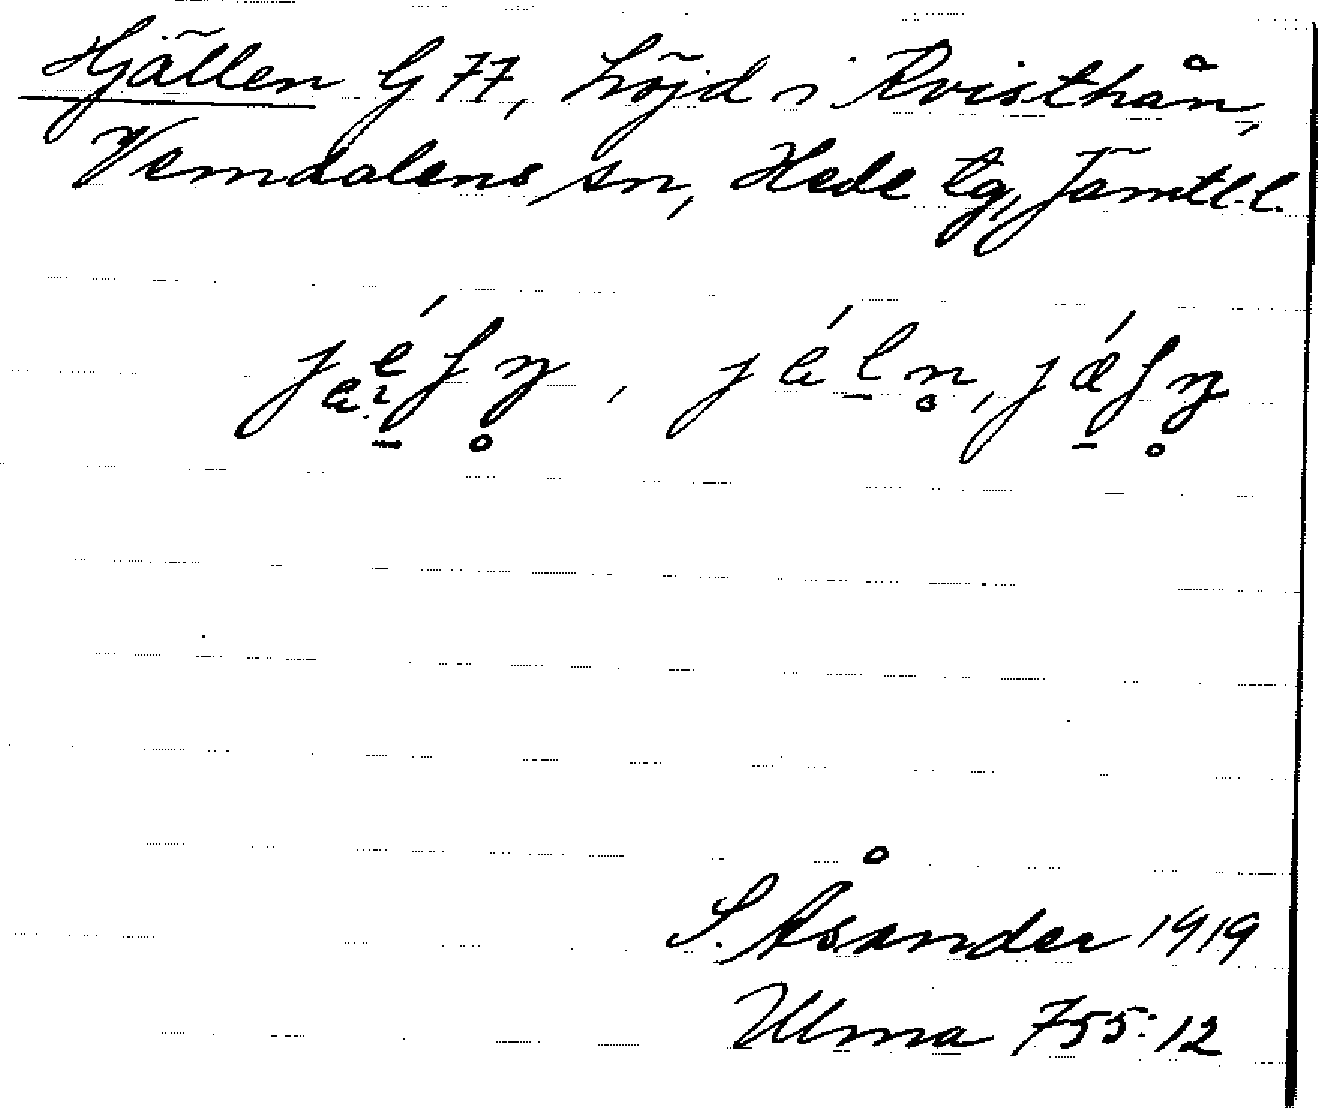 Hjällen G 77, höjd i Kvisthån,
Vemdalens sn, Hede tg, Jämtl. l.
S. Åsander 1919
Ulma 755:12